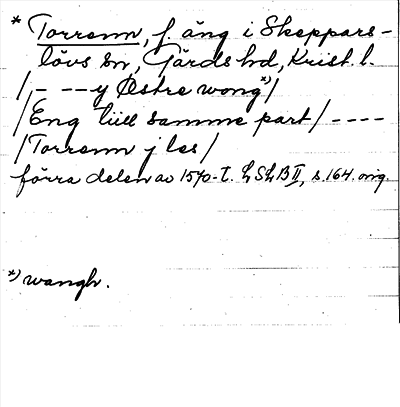 * Torrenn, f. äng i Skeppars-
lövs sn, Gärds hd, Krist. l.
/, - --y Østre wong*)/
/Eng liill samme part/ ----
/Torrenn j les/
förra delen av 1570-t. LSLB II, s. 164. orig.
*) wangh.